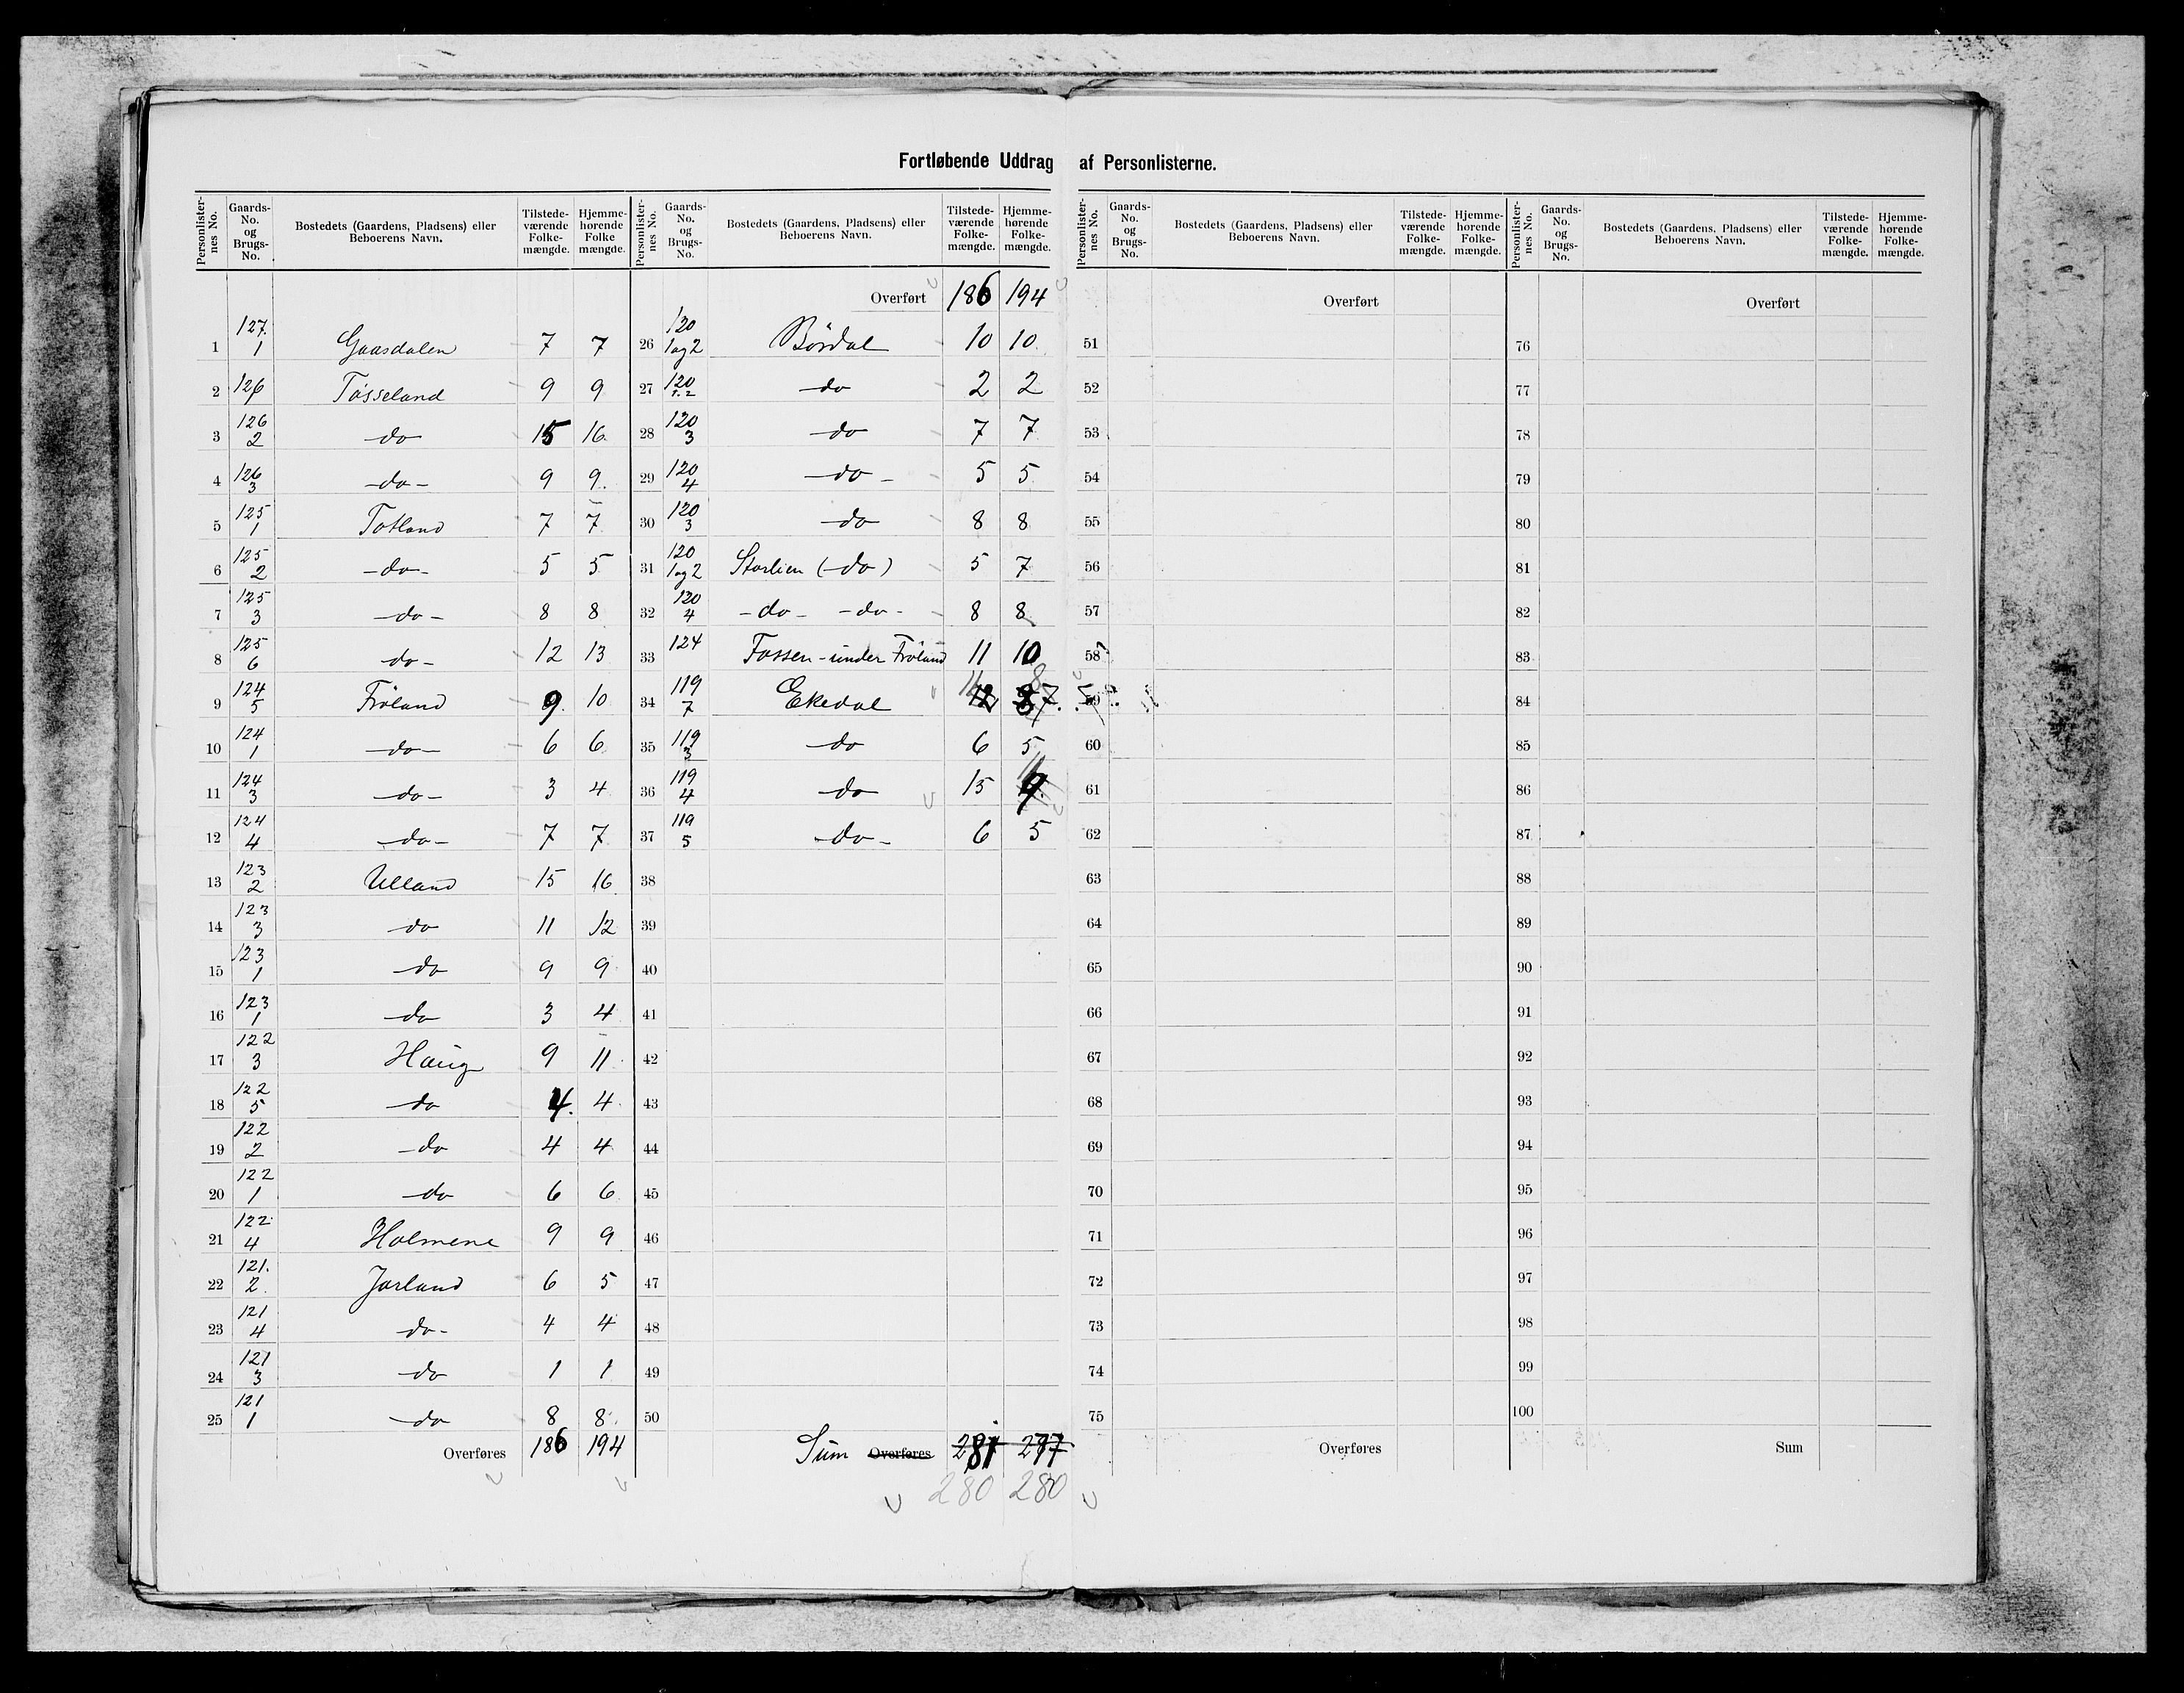 Fortløbende Uddrag af Personlisterne.
Personlisternes No. Gaards-No. og Brugs-No. Bostedets (Gaardens, Pladsens) eller Beboerens Navn. Tilstedeværende Folkemængde. Hjemmehørende Folkemængde.
1 127. 1 Gaasdalen 7 7
2 126 Tøsseland 9 9
3 126 2 -do 15 16.
4 126 3 -do- 9 9.
5 125 1 Totland 7 7
6 125 2 -do- 5 5
7 125 3 -do- 8 8
8 125 6 do- 12 13
9 124 5 Frøland 9. 10
10 124 1 -do- 6 6
11 124 3 -do- 3 4
12 124 4 -do- 7 7
13 123 2 Ulland 15 16.
14 123 3 do 11 12
15 123 1 do 9 9
16 123 1 do 3 4
17 122 3 Haug 9 11
18 122 5 do 4. 4
19 122 2 do 4 4
20 122 1 do 6 6
21 122 4 Holmene 9 9
22 121. 2. Jarland 6 5
23 121 4 do- 4 4
24 121 3 do 1 1
25 121 1 do 8 8.
Overføres 186 194
Personlisternes No. Gaards-No. og Brugs-No. Bostedets (Gaardens, Pladsens) eller Beboerens Navn. Tilstedeværende Folkemængde. Hjemmehørende Folkemængde.
Overført 186 194
26 120 1og2 Børdal 10 10.
27 120 1.2 do 2 2
28 120 3 do 7 7
29 120 4 do - 5 5
30 120 3 do 8 8
31 120 1og2 Storlien (-do) 5 7
32 120 4 -do- -do- 8 8
33 124 Fossen-under Frøland 11 10
34 119 7 Ekedal
35 119 3 do 6 5
36 119 4 do 15
37 119 5 do- 6 5
38
39
40
41
42
43
44
45
46
47
48
49
50
Sum Overføres 281 277
280 280
Personlisternes No. Gaards-No. og Brugs-No. Bostedets (Gaardens, Pladsens) eller Beboerens Navn. Tilstedeværende Folkemængde. Hjemmehørende Folkemængde.
Overført
51
52
53
54
55
56
57
58
59
60
61
62
63
64
65
66
67
68
69
70
71
72
73
74
75
Overføres
Personlisternes No. Gaards-No. og Brugs-No. Bostedets (Gaardens, Pladsens) eller Beboerens Navn. Tilstedeværende Folkemængde. Hjemmehørende Folkemængde.
Overført
76
77
78
79
80
81
82
83
84
85
86
87
88
89
90
91
92
93
94
95
96
97
98
99
100
Sum